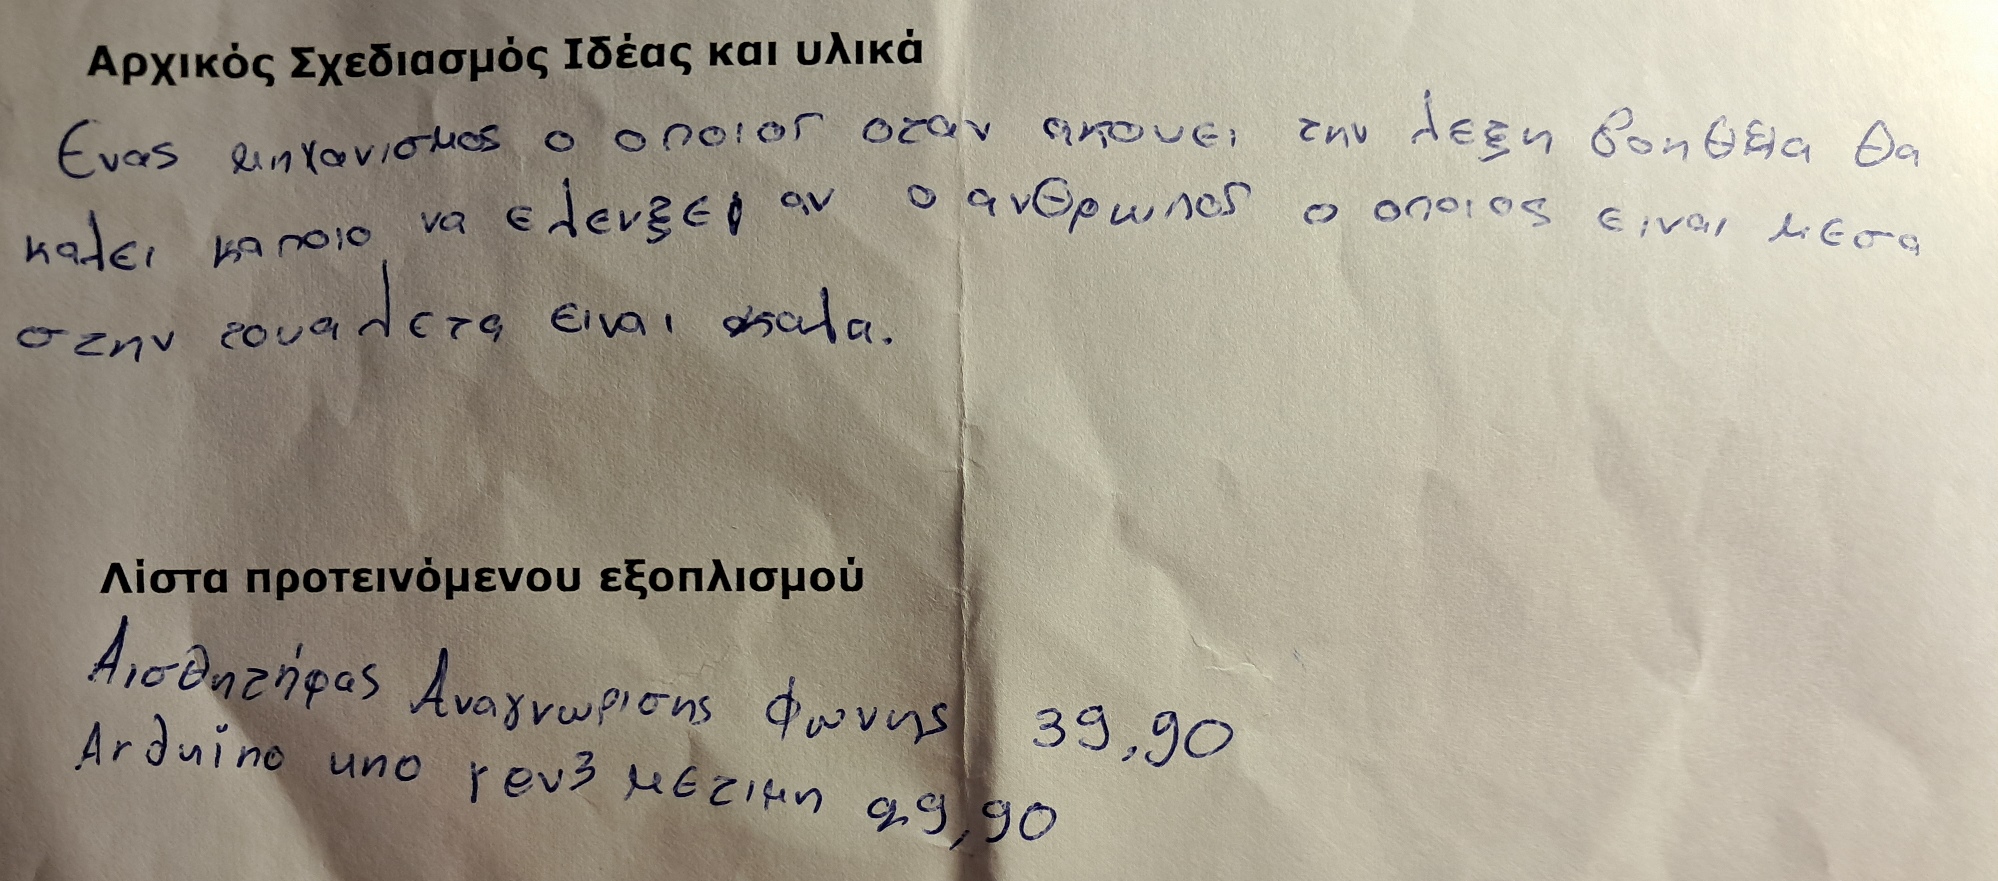 Αρχικός Σχεδιασμός Ιδέας και υλικά
Ενας μηχανισμος ο οποιος οταν ακουει την λεξη βοηθεια θα
καλει καποιο να ελενξει αν ο ανθρωπος ο οποιος ειναι μεσα
στην τουαλετα ειναι καλα.
Λίστα προτεινόμενου εξοπλισμού
Αισθητήρας Αναγνωρισης Φωνης 39,90
Arduino uno rev3 με τιμη 29,90